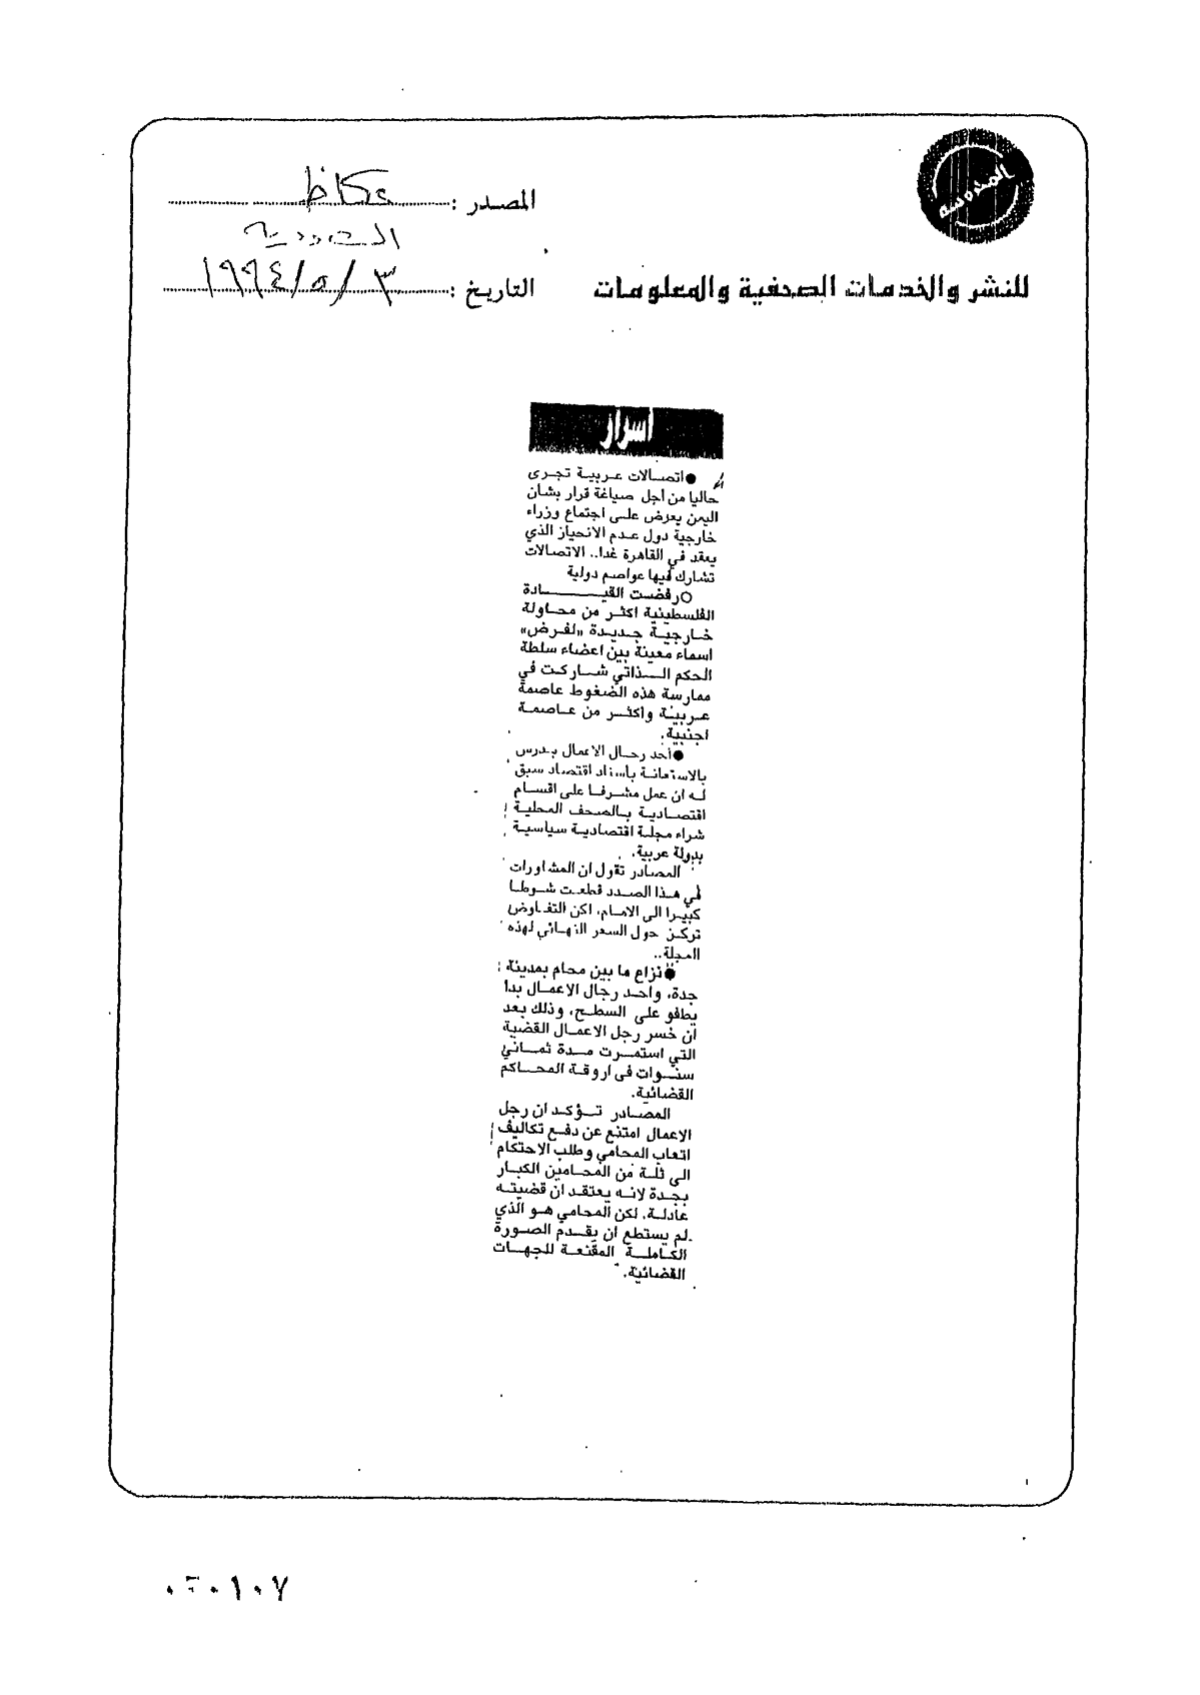 المصدر : عكاظ
السعودية
للنشر والخدمات الصحفية والمعلومات
التاريخ : ٣ / ٥ / ١٩٩٤
اسرار
● اتصالات عربية تجرى
حاليا من اجل صياغة قرار بشان
اليمن يعرض على اجتماع وزراء
خارجية دول عدم الانحياز الذي
يعقد في القاهرة غدا.. الاتصالات
تشارك فيها عواصم دولية
○ رفضت القيادة
الفلسطينية اكثر من محاولة
خارجية جديدة «لفرض»
اسماء معينة بين اعضاء سلطة
الحكم الذاتي شاركت في
ممارسة هذه الضغوط عاصمة
عربية واكثر من عاصمة
اجنبية.
● أحد رجال الاعمال يدرس
بالاستعانة باستاذ اقتصاد سبق
له ان عمل مشرفا على اقسام
اقتصادية بالصحف المحلية
شراء مجلة اقتصادية سياسية
بدولة عربية.
المصادر تقول ان المشاورات
في هذا الصدد قطعت شوطا
كبيرا الى الامام، لكن التفاوض
تركز حول السعر النهائي لهذه
المجلة..
● نزاع ما بين محام بمدينة
جدة، واحد رجال الاعمال بدا
يطفو على السطح، وذلك بعد
ان خسر رجل الاعمال القضية
التي استمرت مدة ثماني
سنوات فى اروقة المحاكم
القضائية.
المصادر تؤكد ان رجل
الاعمال امتنع عن دفع تكاليف
اتعاب المحامي وطلب الاحتكام
الى ثلة من المحامين الكبار
بجدة لانه يعتقد ان قضيته
عادلة، لكن المحامي هو الذي
لم يستطع ان يقدم الصورة
الكاملة المقنعة للجهات
القضائية.